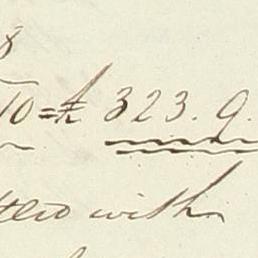 8
10=£ 323.9.
tled with